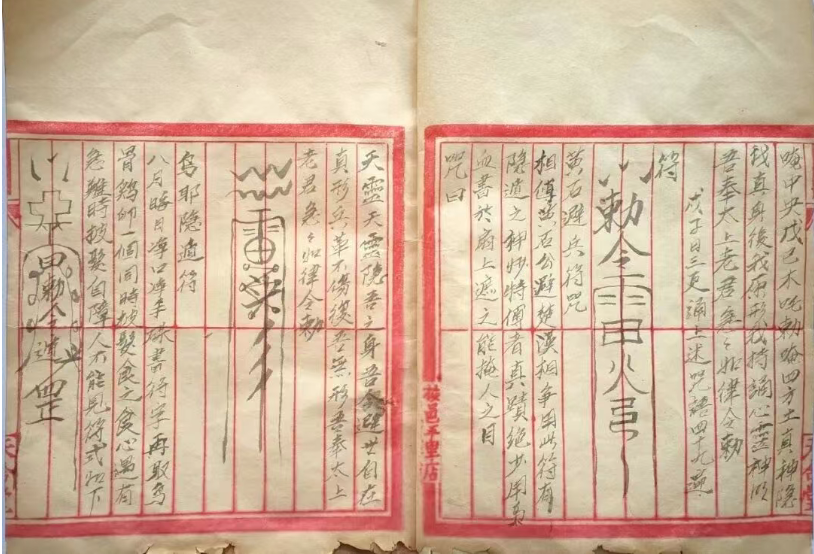 嗨中央戊己木吼勅哈四方土真神隐
我真身後我保形我持誦心灵神明
吾奉太上老君急々如律令勅
戊子日三更誦上述咒語四十九遍
符
勅令雨田火弓
黄石避兵符咒
相傳黄石公避楚漢相争用此符有
隐遁之神妙特傅者真蹟绝少用
血書於扇上遮之能掩人之目
咒曰
天靈天靈隐吾之身吾今避世自在
真形兵革不傷後吾無形吾奉太上
老君急々如律令勅
烏耶隐遁符
八月晦日净口净手硃書符字再取烏
骨鸡卵一個同時披髮食之食心遇有
急難時披髮自障人不能見符式如下
田勅令遮罡